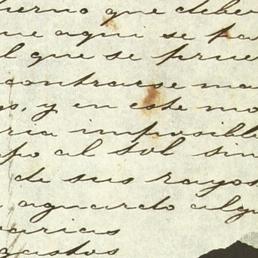 ierno que deber
ue aqui se pa
l que se prue
contrarse ma
os, y en este mo
ria imposible
po al sol sin
de sus rayos
, aguardo algu
varias
gastos